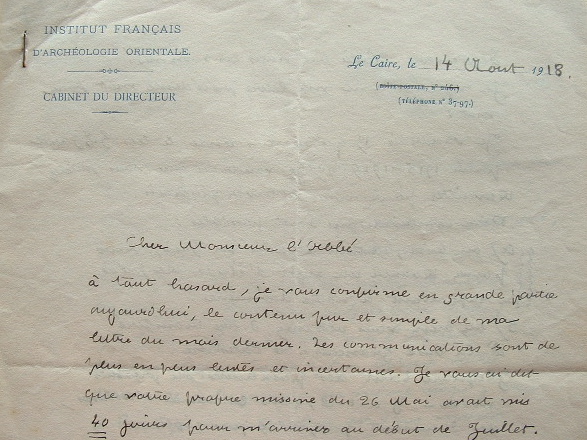 INSTITUT FRANÇAIS
D'ARCHÉOLOGIE ORIENTALE.
CABINET DU DIRECTEUR
Le Caire, le 14 Aout 1918.
(BOÎTE POSTALE, N° 246.)
(TÉLÉPHONE N° 37-97.)
Cher Monsieur l'Abbé
à tout hasard, je vous confirme en grande partie
aujourd'hui, le contenu pur et simple de ma
lettre du mois dernier. Les communications sont de
plus en plus lentes et incertaines. Je vous ai dit
que votre propre missive du 26 Mai avait mis
40 jours pour m'arriver au début de Juillet.